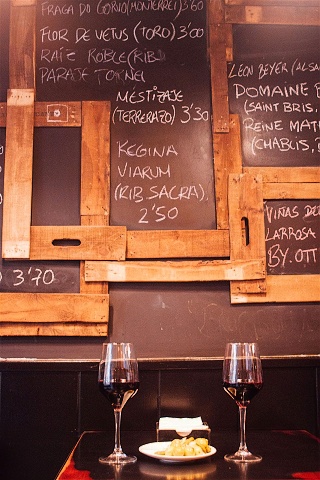 FRAGA DO CORVO (MONTERREI) 3'60
FLOR DE VETUS (TORO) 3'00
RAÍZ ROBLE (RIB
PARAJE
MESTIZAJE
(TERRERAZO) 3'30
REGINA
VIARUM
(RIB. SACRA).
2'50
3'70
LÉON BEYER (ALSA
DOMAINE
(SAINT BRIS,
REINE MAT
(CHABLIS,
VIÑAS DE
LARROSA
BY. OTT